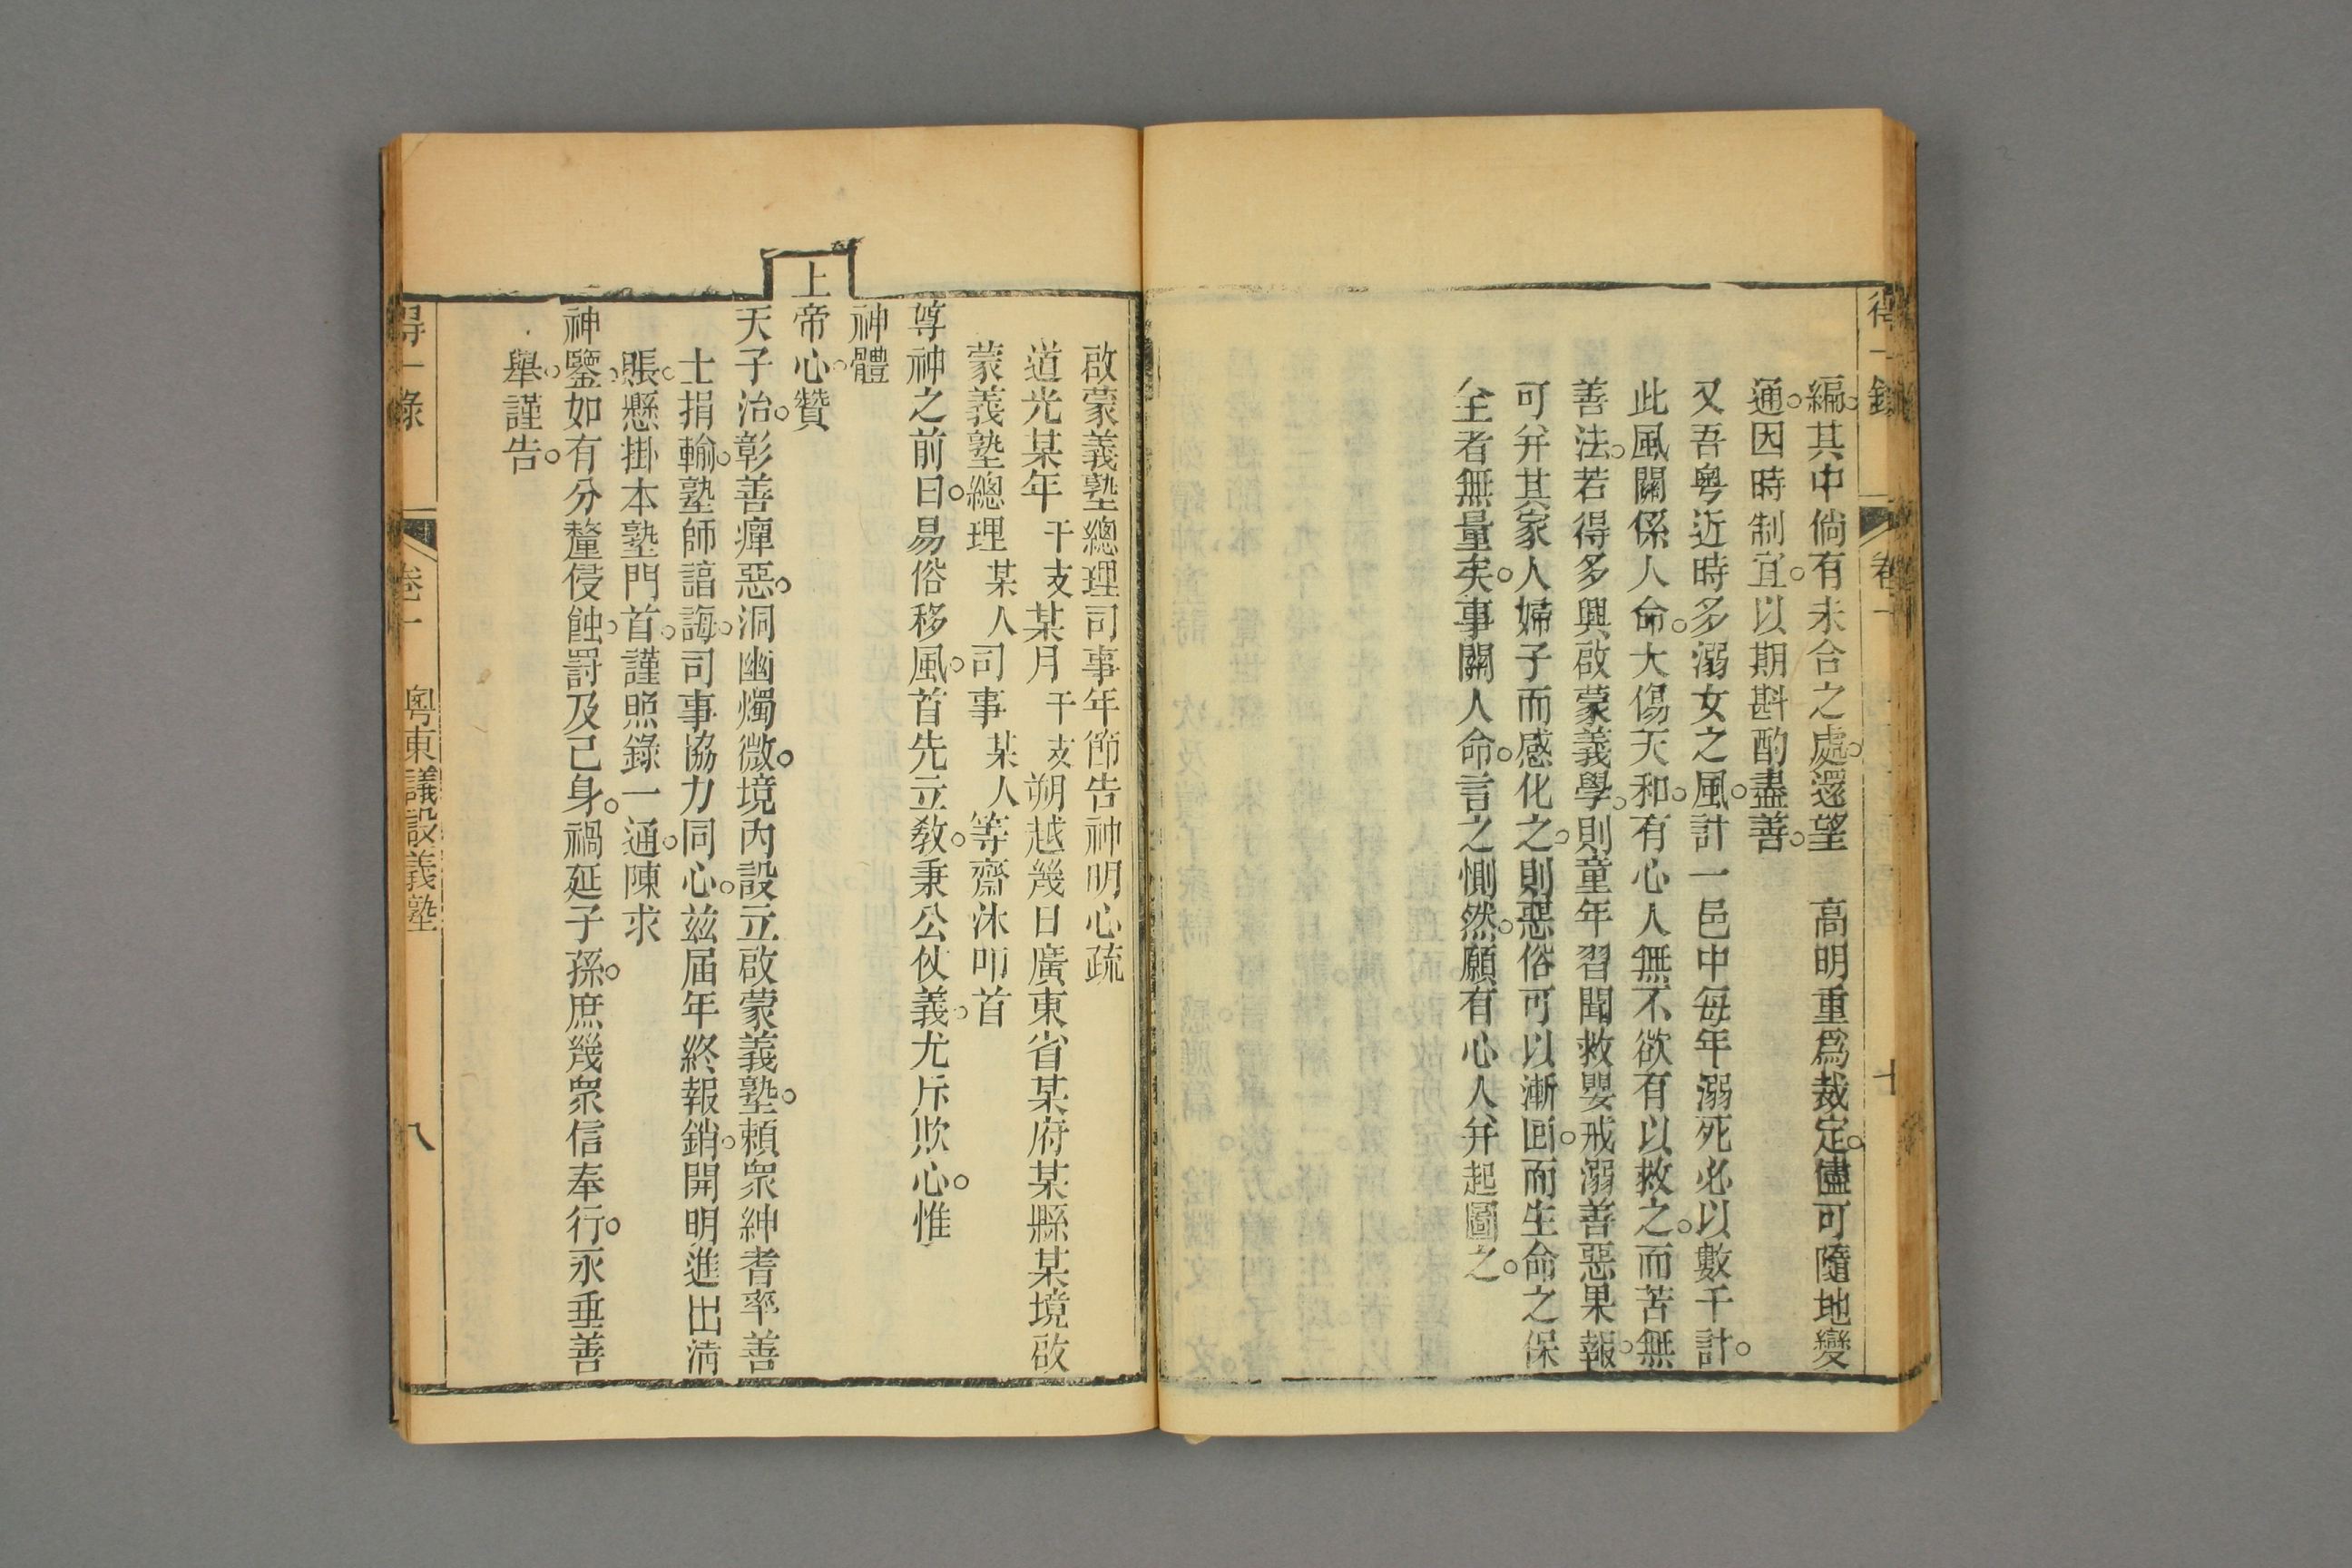 得一錄
卷十
編。其中倘有未合之處。還望　高明重爲裁定。儘可隨地變
通。因時制宜。以期斟酌盡善。
又吾粵近時多溺女之風。計一邑中每年溺死必以數千計。
此風關係人命。大傷天和。有心人無不欲有以救之。而苦無
善法。若得多興啟蒙義學。則童年習聞救嬰戒溺善惡果報。
可幷其家人婦子而感化之。則惡俗可以漸回。而生命之保
全者無量矣。事關人命。言之惻然。願有心人幷起圖之。
啟蒙義塾總理司事年節告神明心疏
道光某年干支某月干支朔越幾日廣東省某府某縣某境啟
蒙義塾總理某人司事某人等齋沐叩首
尊神之前曰。易俗移風。首先立敎。秉公仗義。尤斥欺心。惟
神體
上帝心。贊
天子治。彰善癉惡。洞幽燭微。境內設立啟蒙義塾。賴衆紳耆率善
士捐輸。塾師諳誨。司事協力同心。茲屆年終報銷。開明進出淸
賬。懸掛本塾門首。謹照錄一通。陳求
神鑒。如有分釐侵蝕。罰及己身。禍延子孫。庶幾衆信奉行。永垂善
舉。謹告。
得一錄
卷十　粵東議設義塾
八